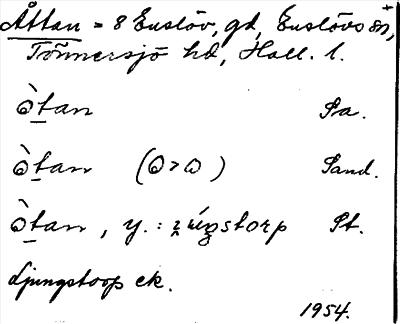 Åttan = 8 Enslöv, gd, Enslövs sn,
Tönnersjö hd, Hall. l.
òtan Sa.
òtan (o > ɷ) Sand.
òtan, y. : St.
Ljungstorp ek.
1954.